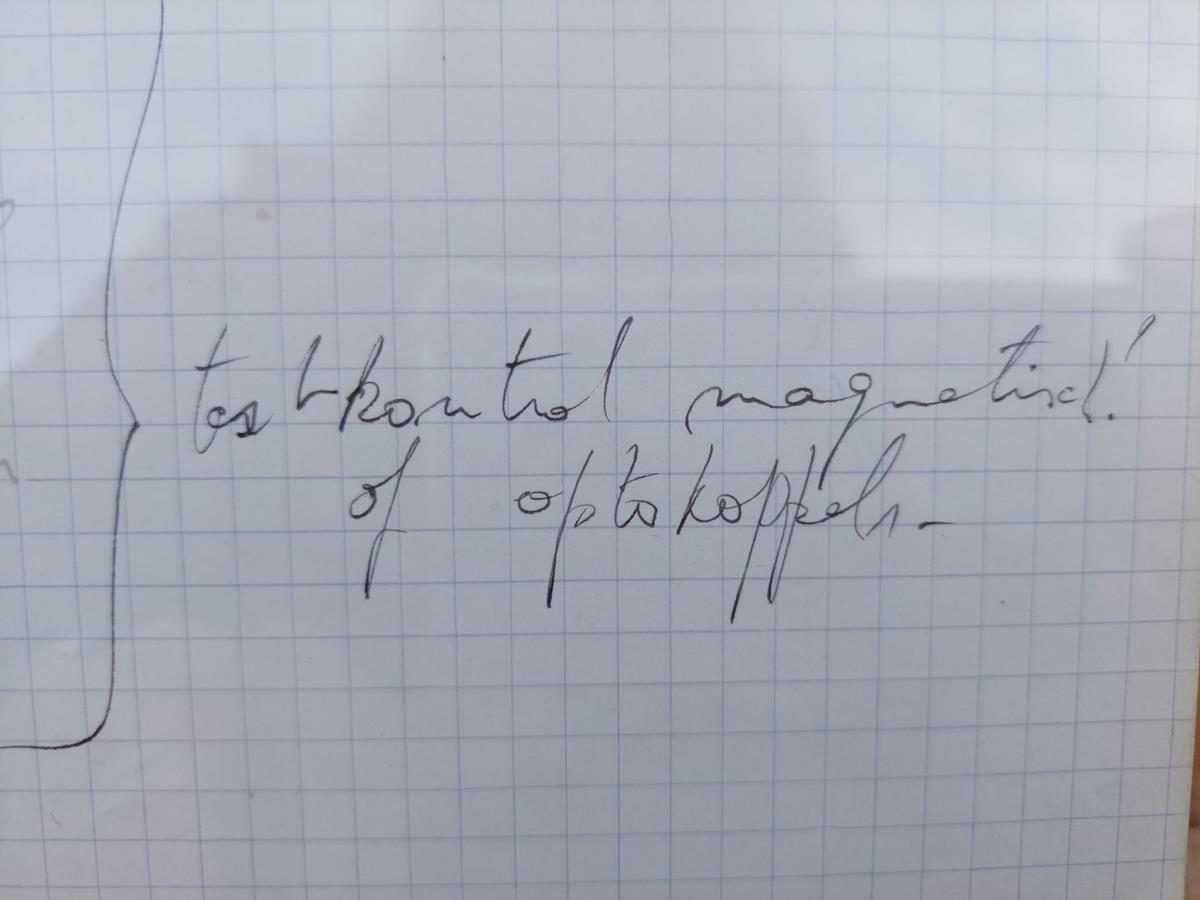 test-kontrol magnetisch!
of optokoppels.-